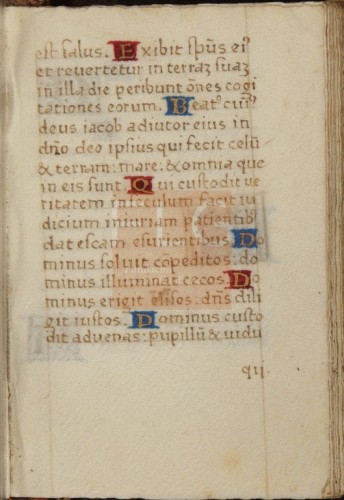 est salus. Exibit sp̄us ei᷒
et reuertetur in terrā suā
in illa die peribunt ōnes cogi
tationes eorum. Beat᷒ cui᷒
deus iacob adiutor eius in
dn̄o deo ipsius qui fecit celū
& terram: mare: & omnia que
in eis sunt. Qui custodit ue
ritatem in seculum facit iu
dicium iniuriam patientib᷒
dat escam esurientibus. Do
minus soluit cōpeditos: do
minus illuminat cecos. Do
minus erigit elisos: dn̄s dili
git iustos. Dominus custo
dit aduenas: pupillū & uidu